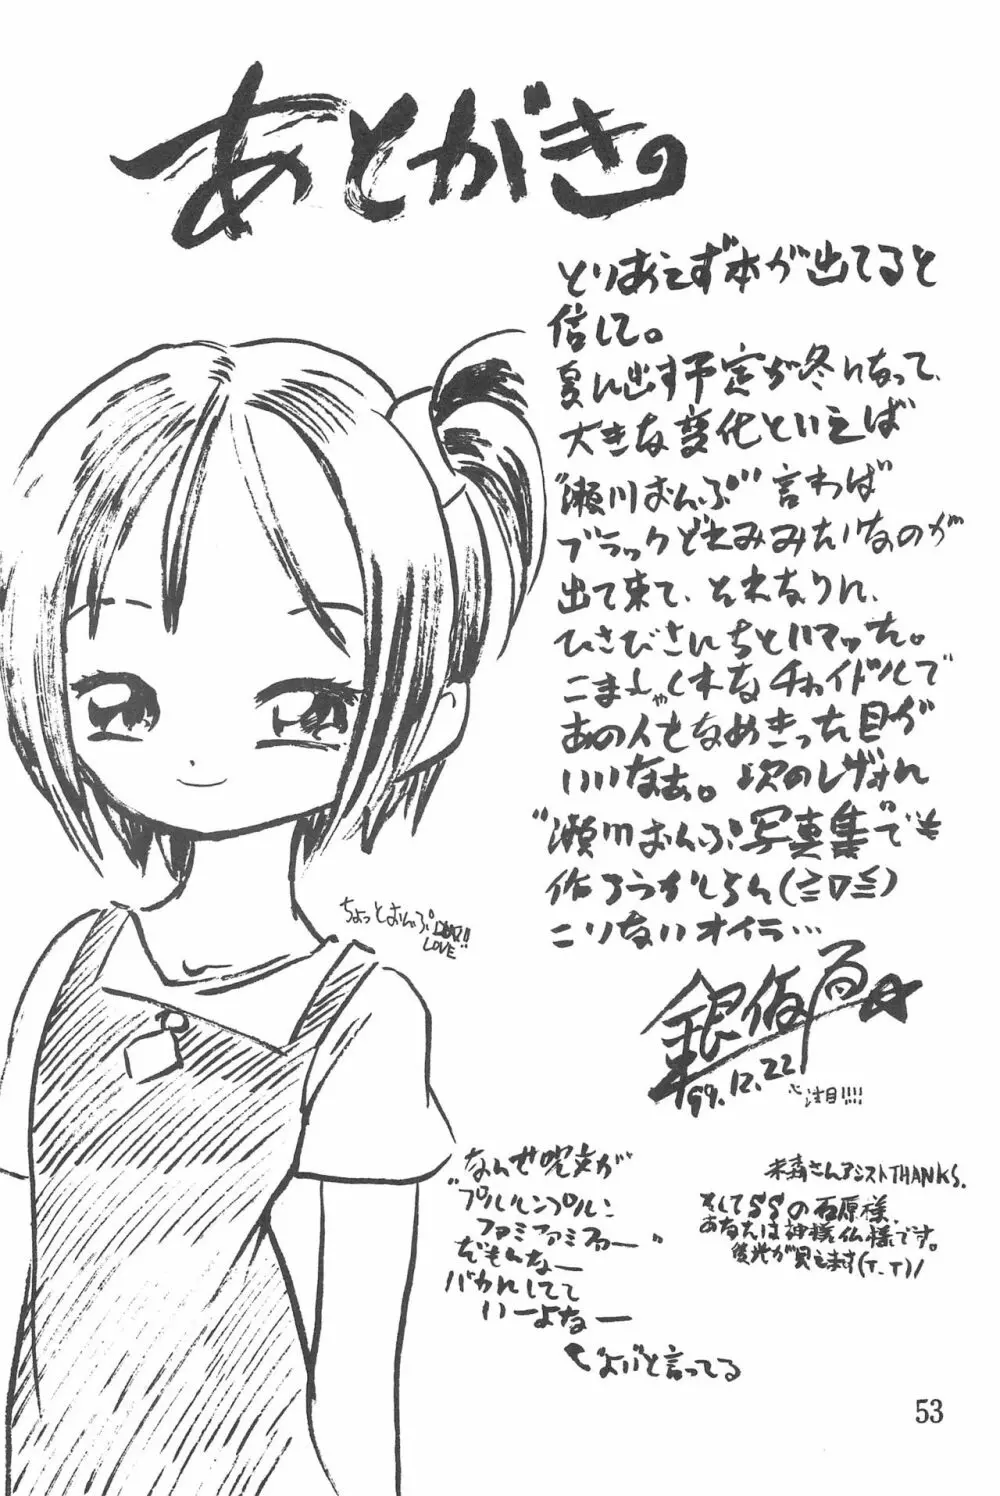 あとがき。
とりあえず本が出てると
信じて。
夏に出す予定が冬になって、
大きな変化といえば
"瀬川おんぷ"言わば
ブラックどれみみたいなのが
出て来て、それなりに、
ひさびさにちとハマッた。
こましゃくれたチャイドルで
あの人をなめきった目が
いいなぁ。次のレヴォに
"瀬川おんぷ写真集"でも
作ろうかしらん(≧▽≦)
こりないオイラ…
ちょっとおんぷ
LOVE!!
99.12.22
注目!!!!
なんせ呪文が
"プルルンプルン
ファミファミファー"
だもんなー
バカにしてて
いーよなー
米森さんアシストTHANKS.
そしてSSの石原様
あなたは神様仏様です。
後光が見えます(T_T)ノ
53